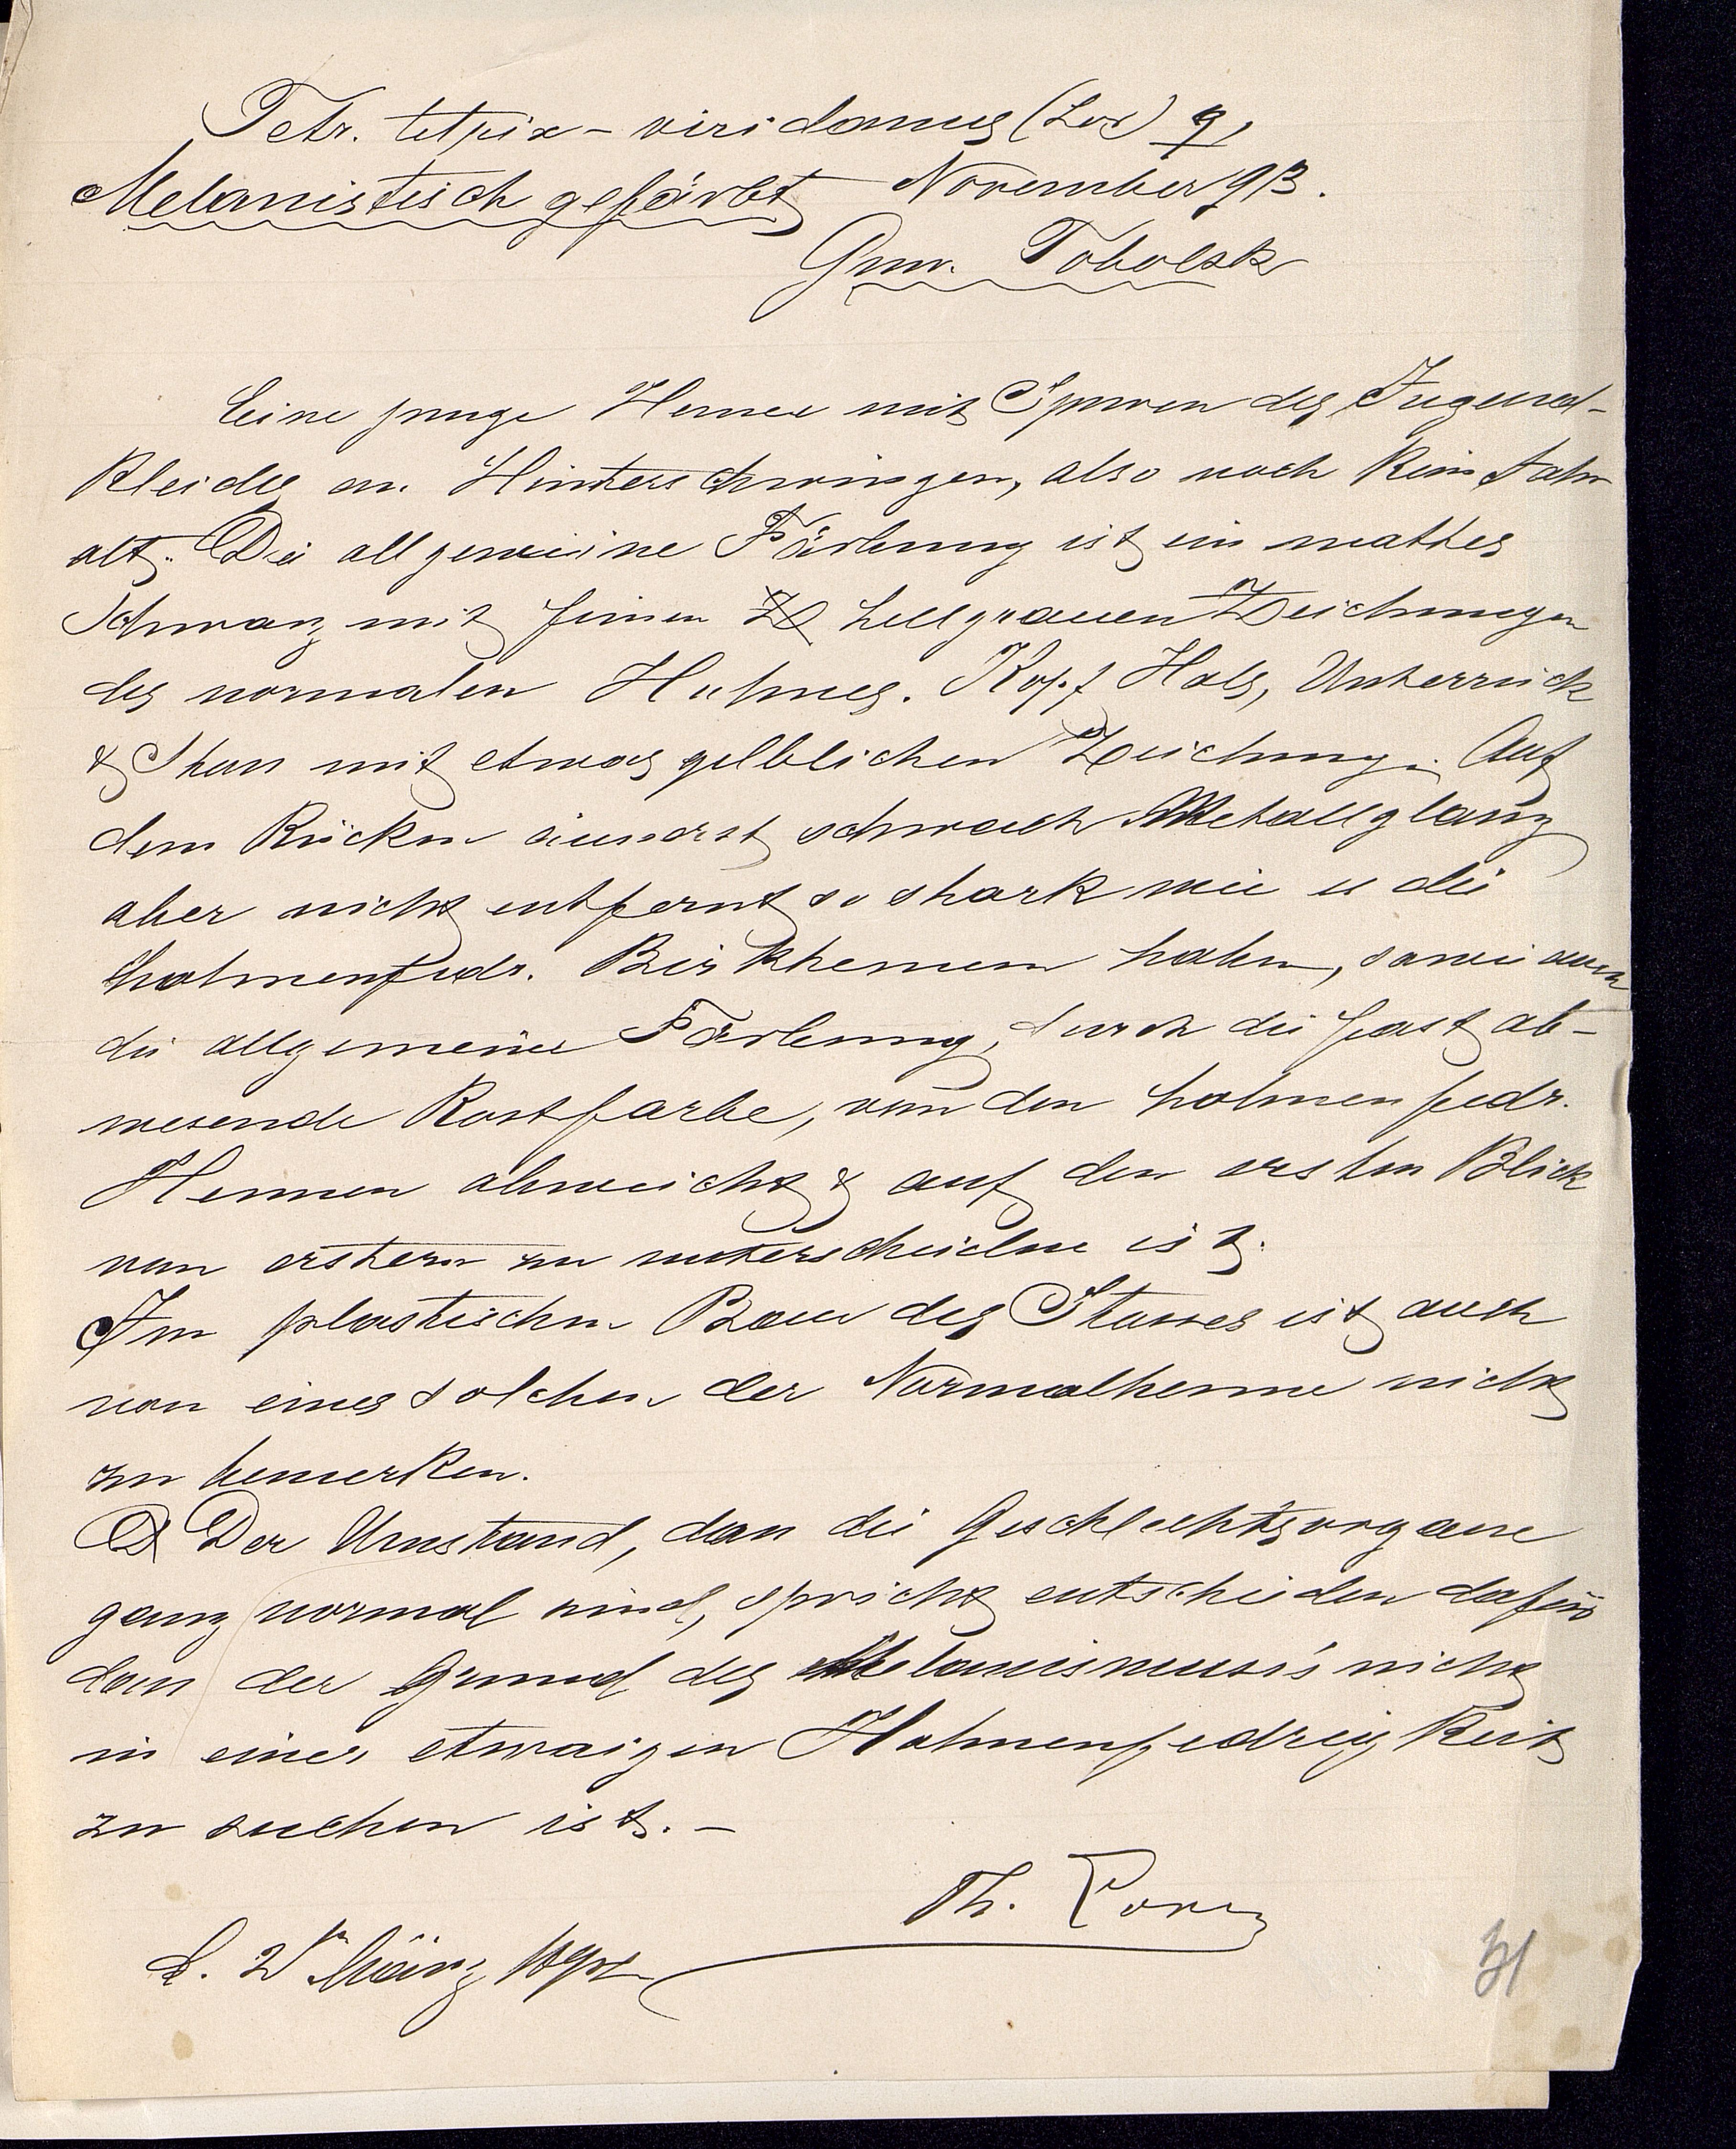 Tetr. tetrix-viridanus (Lor) ♀,
Melanistisch gefärbt November 93.
Gouv. Tobolsk
Eine junge Henne mit Spuren des Jugend-
kleides an Hinterschwingen, also noch kein Jahr
alt. Die allgemeine Färbung ist ein mattes
Schwarz mit feinen hellgrauen Zeichnungen
des normalen Huhnes. Kopf Hals, Unterrück
& mit etwas gelblichen Zeichnung. Auf
dem Rücken äusserst schwach Metallglanz
aber nicht entfernt so stark wie es die
hahnenfedr. Birkhennen haben, sowie auch
die allgemeine Färbung, durch die fast ab-
wesende Rostfarbe, von den hahnenfedr.
Hennen abweicht & auf den ersten Blick
von erstern zu unterscheiden ist.
Im plastischen Bau des ist auch
von eines solchen der Normalhenne nicht
zu bemerken.
Der Umstand, dass die Geschlechtsorgane
ganz normal sind, spricht entschieden dafür
dass der Grund des Melanismus's nicht
in einer etwaigen Hahnenfedrigkeit
zu suchen ist. –
Th. Lorenz
März
31